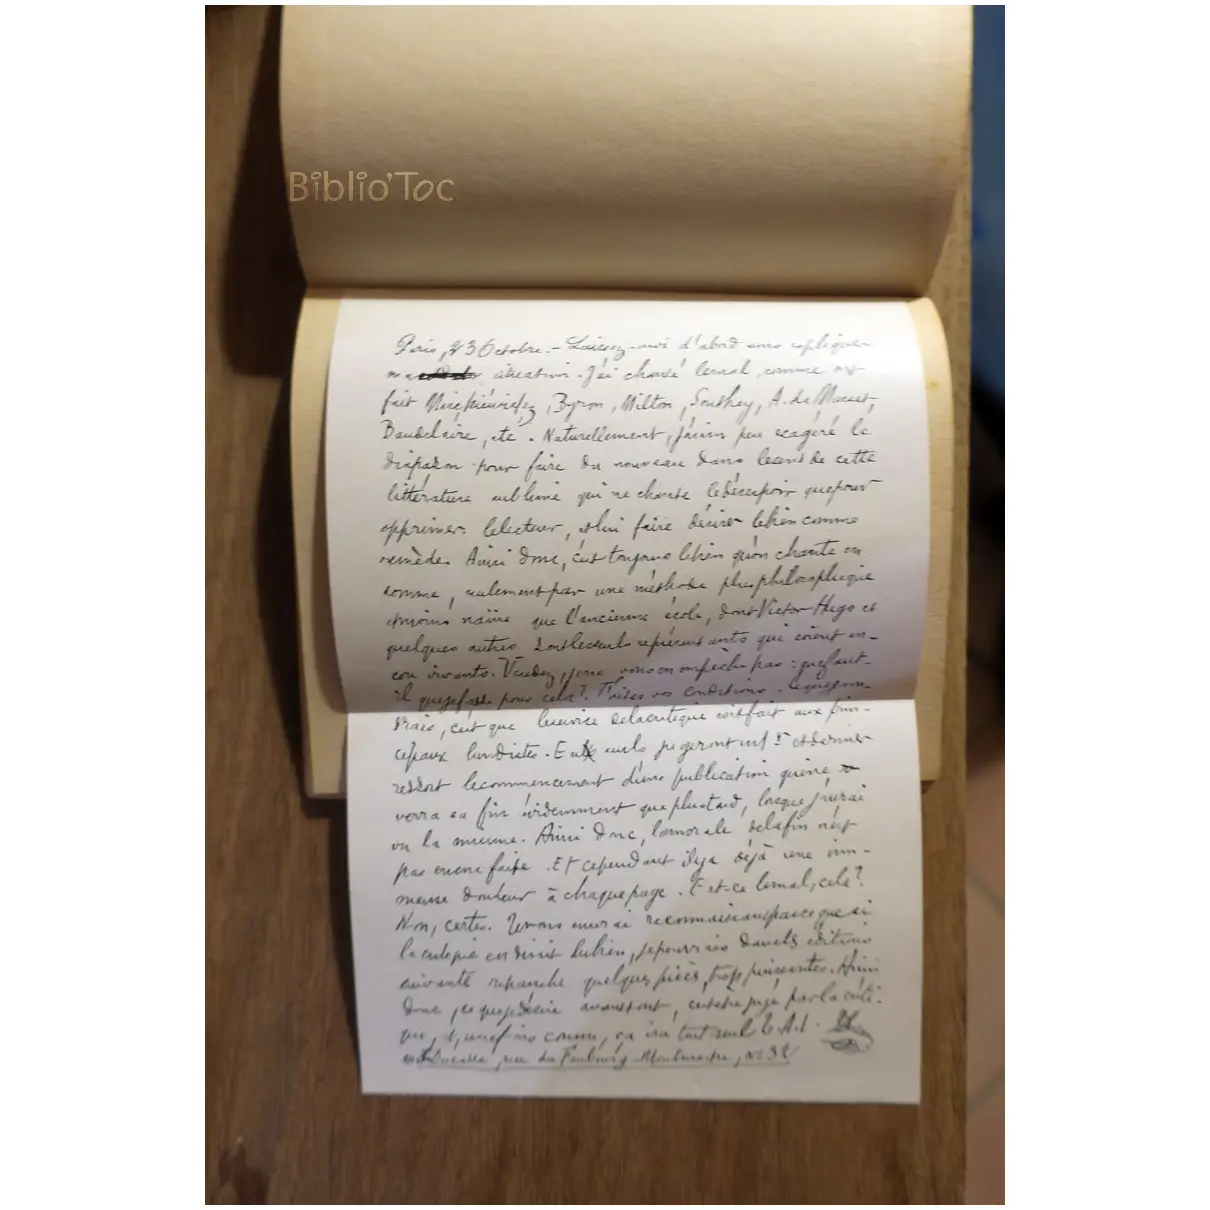 Biblio'Toc
Paris, 23 Octobre. - Laissez-moi d'abord vous expliquer
ma situation. J'ai chanté le mal, comme ont
fait Mickiéwickz, Byron, Milton, Southey, A. de Musset,
Baudelaire, etc. Naturellement, j'ai un peu exagéré le
diapason pour faire du nouveau dans le sens de cette
littérature sublime qui ne chante le désespoir que pour
opprimer le lecteur, et lui faire désirer le bien comme
remède. Ainsi donc, c'est toujours le bien qu'on chante en
somme, seulement par une méthode plus philosophique
et moins naïve que l'ancienne école, dont Victor Hugo et
quelques autres sont les seuls représentants qui soient en-
core vivants. Vendez, je ne vous en empêche pas : que faut-
il que je fasse pour cela ? Faites vos conditions. Ce que je vou-
drais, c'est que le service de la critique soit fait aux prin-
cipaux lundistes. Eux seuls jugeront en 1er et dernier
ressort le commencement d'une publication qui ne
verra sa fin évidemment que plus tard, lorsque j'aurai
vu la mienne. Ainsi donc, la morale de la fin n'est
pas encore faite. Et cependant il y a déjà une im-
mense douleur à chaque page. Est-ce le mal, cela ?
Non, certes. Je vous en serai reconnaissant parce que si
la critique en disait du bien, je pourrais dans les éditions
suivantes retrancher quelques pièces, trop puissantes. Ainsi
donc, ce que je désire avant tout, c'est être jugé par la criti-
que, et, une fois connu, ça ira tout seul. T. A. V.
I. Ducasse, rue du Faubourg Montmartre, N° 32